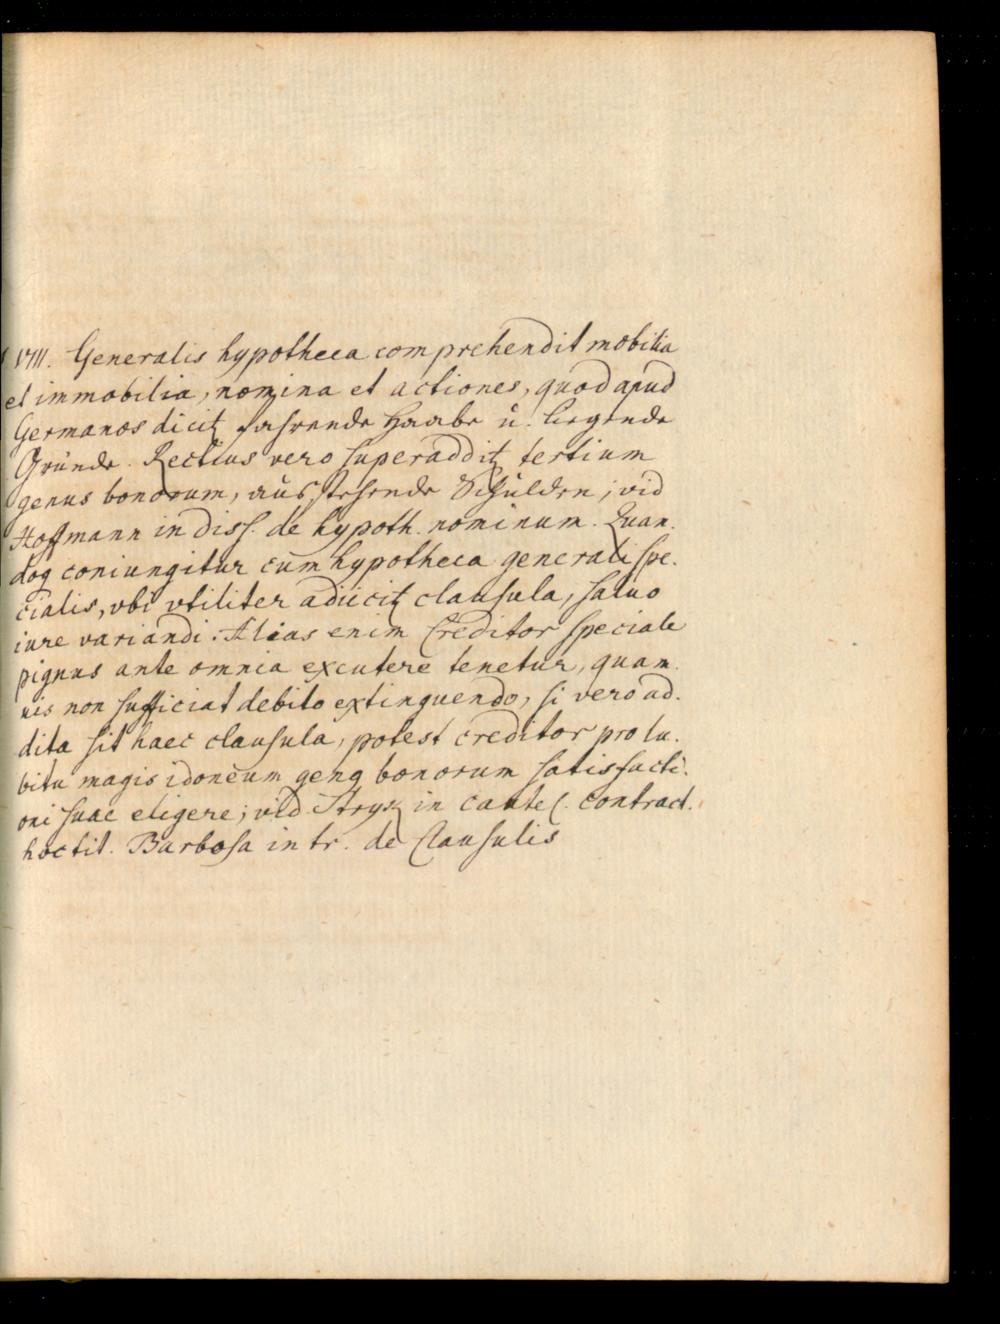 VIII. Generalis hypotheca comprehendit mobilia
et immobilia, nomina et actiones, quod apud
Germanos dicitꝛ fahrende Haabe ŭ. liegende
Gründe. Rectius vero superadditꝛ tertium
genus bonorum, aŭsstehende Schŭlden; vid
Hoffmann in diss. de hypoth. nominum. Quan.
doq coniungitur cum hypotheca generali spe.
cialis, vbi vtiliter adiicitꝛ clausula, saluo
iure variandi. Alias enim Creditor speciale
pignus ante omnia excutere tenetur, quam.
uis non sufficiat debito extinguendo, si vero ad.
dita sit haec clausula, potest creditor pro lu.
bitu magis idoneum geng bonorum satisfacti.
oni suae eligere; vid. Stryk in cautel. contract.
hoc tit. Barbosa in tr. de Clausulis